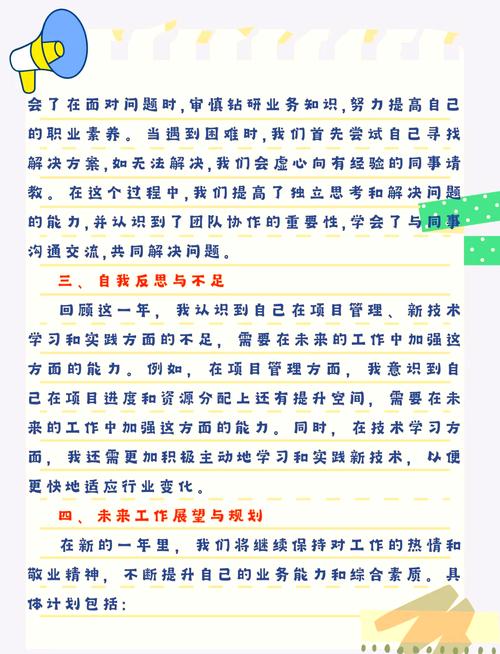 会了在面对问题时,审慎钻研业务知识,努力提高自己
的职业素养。当遇到困难时,我们首先尝试自己寻找
解决方案,如无法解决,我们会虚心向有经验的同事请
教。在这个过程中,我们提高了独立思考和解决问题
的能力,并认识到了团队协作的重要性,学会了与同事
沟通交流,共同解决问题。
三、自我反思与不足
回顾这一年，我认识到自己在项目管理、新技术
学习和实践方面的不足，需要在未来的工作中加强这
方面的能力。例如，在项目管理方面，我意识到自
己在项目进度和资源分配上还有提升空间，需要在未
来的工作中加强这方面的能力。同时，在技术学习方
面，我还需更加积极主动地学习和实践新技术，以便
更快地适应行业变化。
四、未来工作展望与规划
在新的一年里，我们将继续保持对工作的热情和
敬业精神，不断提升自己的业务能力和综合素质。具
体计划包括：